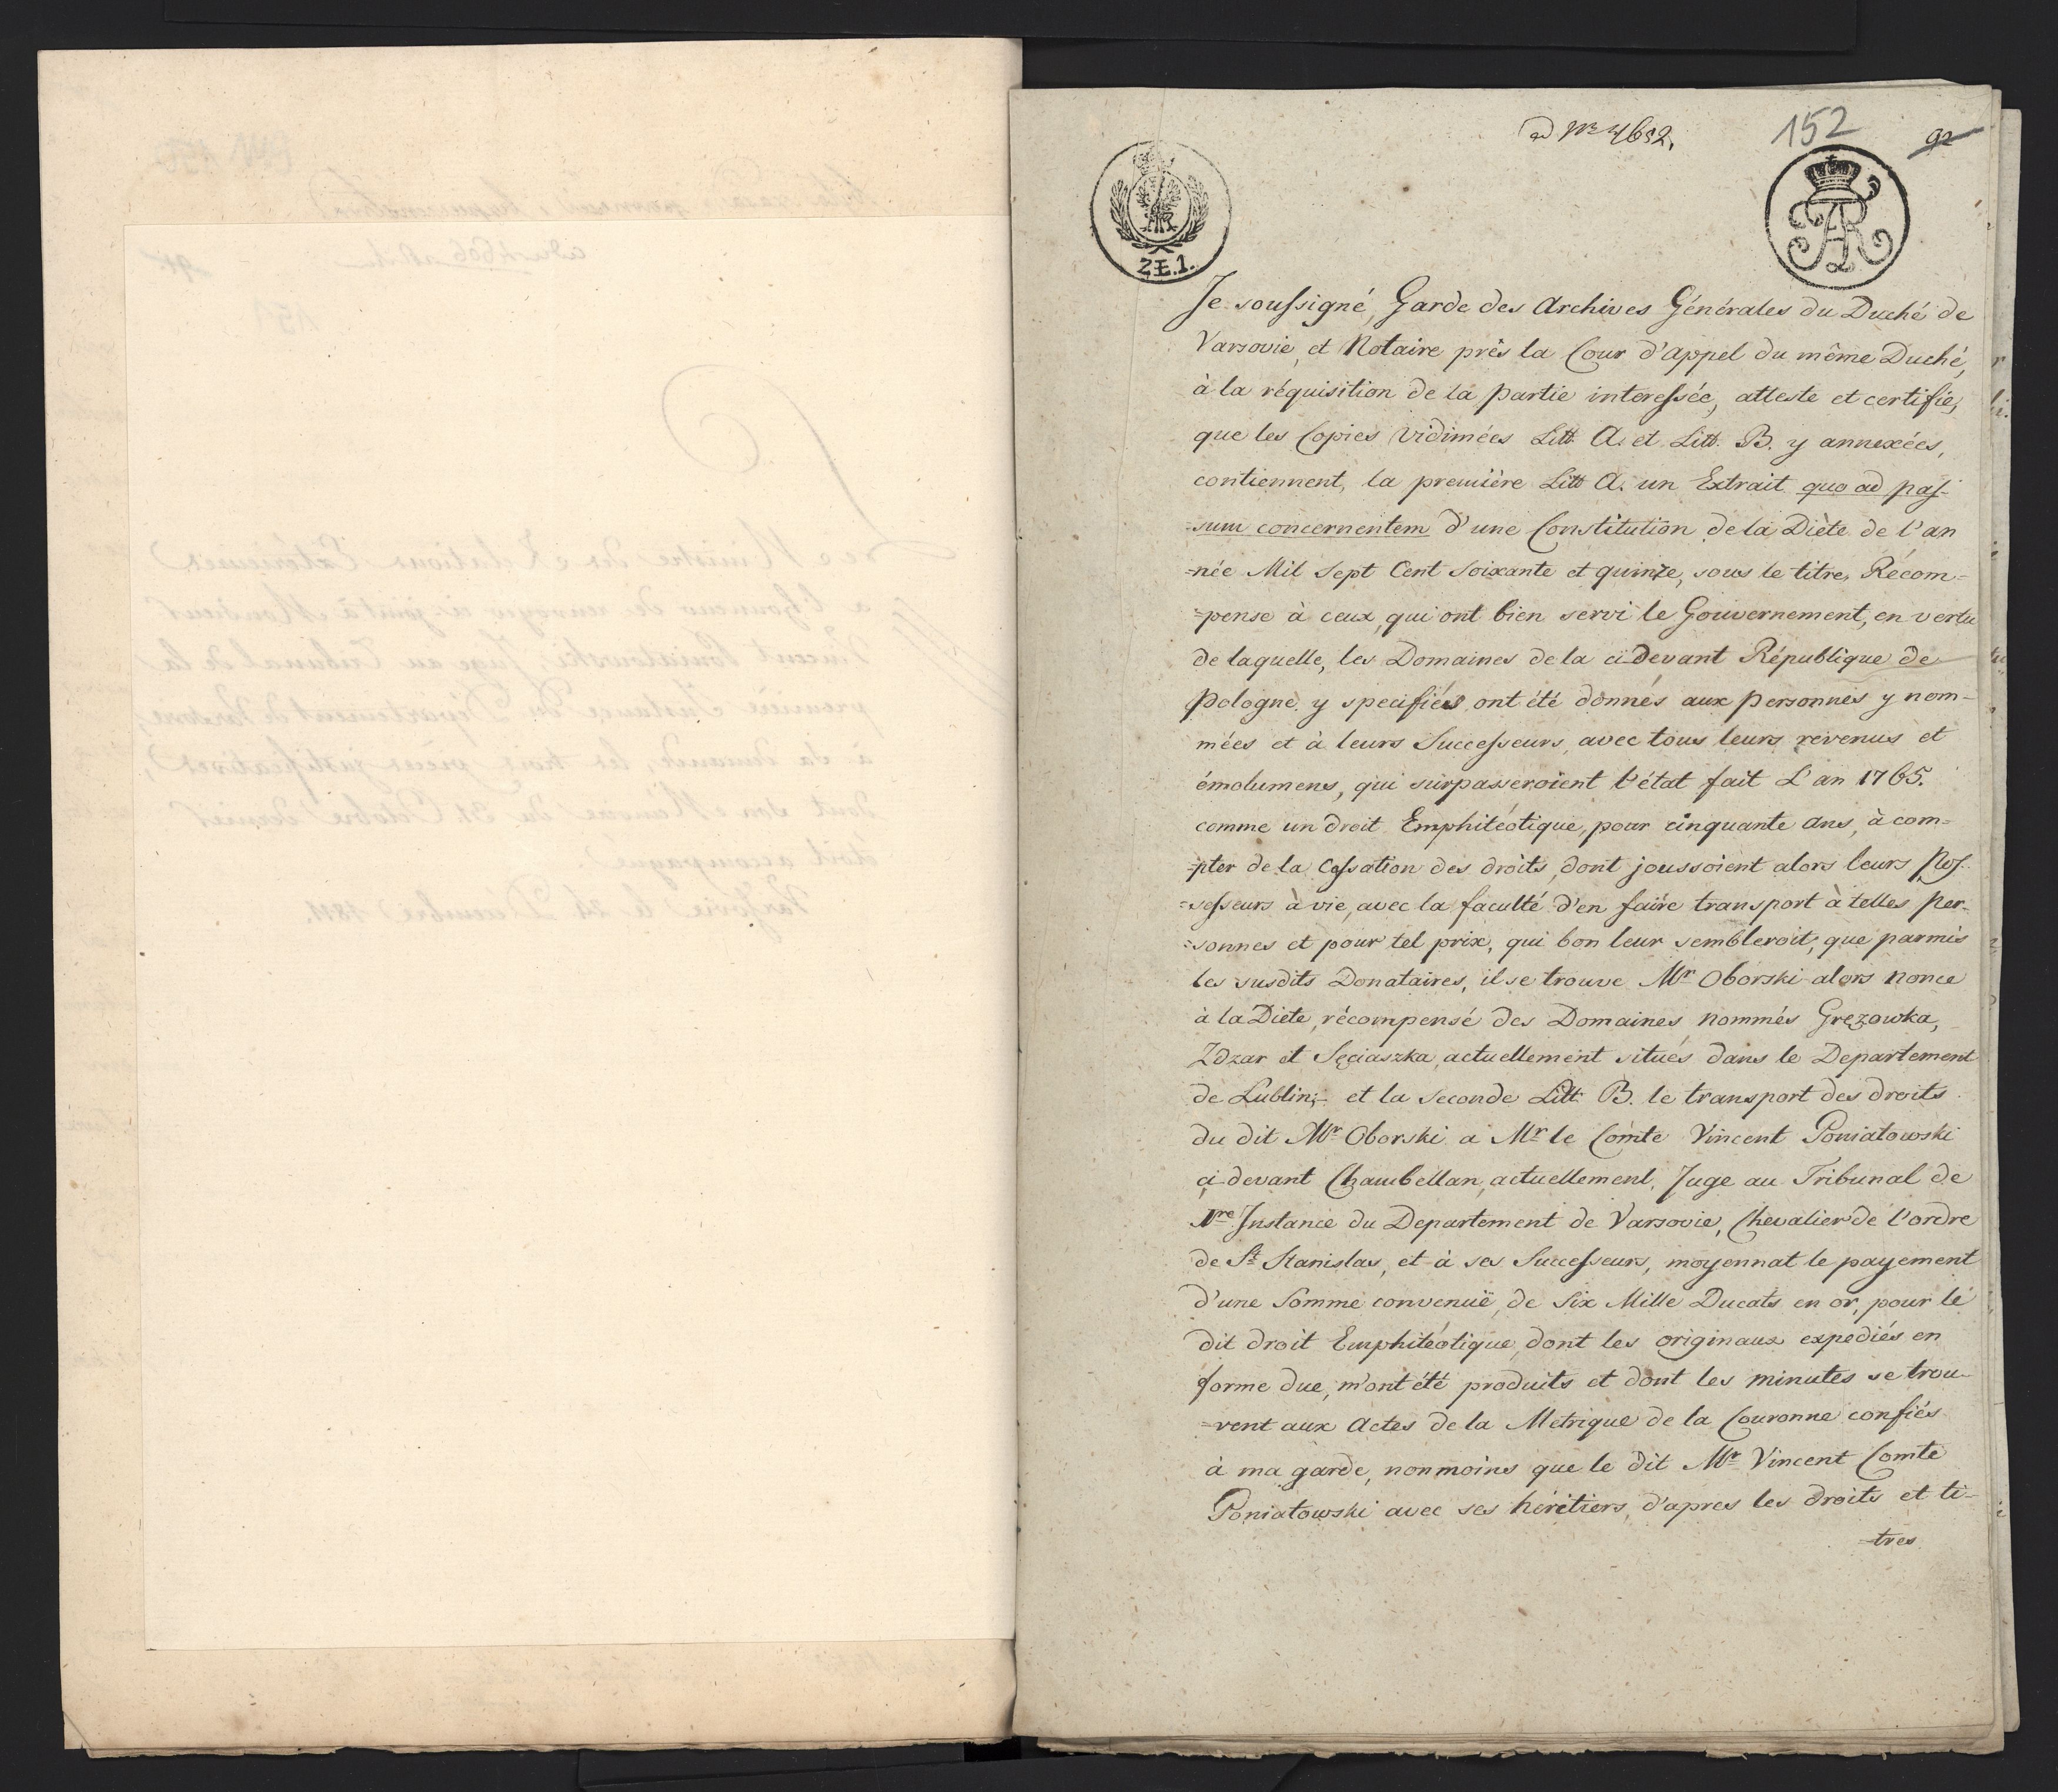 ad Nro 4652.
152
92
ZŁ.1.
Je soussigné, Garde des Archives Générales du Duché de
Varsovie, et Notaire près la Cour d'appel du même Duché,
à la réquisition de la partie interessée, atteste et certifie,
que les Copies vidimées Litt. A. et Litt. B. y annexées,
contiennent, la première Litt A. un Extrait quo ad pas-
=sum concernentem d'une Constitution de la Diète de l'an
=née Mil Sept Cent Soixante et quinze, sous le titre, Récom=
=pense à ceux, qui ont bien servi le Gouvernement, en vertu
de laquelle, les Domaines de la ci-devant République de
Pologne y specifiés ont été donnés aux personnes y nom-
mées et à leurs Successeurs, avec tous leurs revenus et
émolumens, qui surpasseroient l'état fait L'an 1765.
comme un droit Emphitéotique, pour cinquante ans, à com=
=pter de la Cessation des droits, dont joussoient alors leurs Pos-
=sesseurs à vie, avec la faculté d'en faire transport à telles per-
=sonnes et pour tel prix, qui bon leur sembleroit; que parmis
les susdits Donataires, il se trouve Mr Oborski alors nonce
à la Diete, récompensé des Domaines nommés Gręzowka,
Zdzar et Sęciaszka, actuellement situés dans le Departement
de Lublin; et la Seconde Litt B. le transport des droits
du dit Mr Oborski a Mr le Comte Vincent Poniatowski
ci-devant Chambellan, actuellement, Juge au Tribunal de
1re Instance du Departement de Varsovie, Chevalier de l'ordre
de St Stanislas, et à ses Successeurs, moyennat le payement
d'une Somme convenuë, de Six Mille Ducats en or, pour le
dit droit Emphitéotique, dont les originaux expediés en
forme due, m'ont été produits et dont les minutes se trou-
=vent aux Actes de la Metrique de la Couronne confiés
à ma garde, non moins que le dit Mr Vincent Comte
Poniatowski avec ses héritiers, d'apres les droits et ti-
=tres